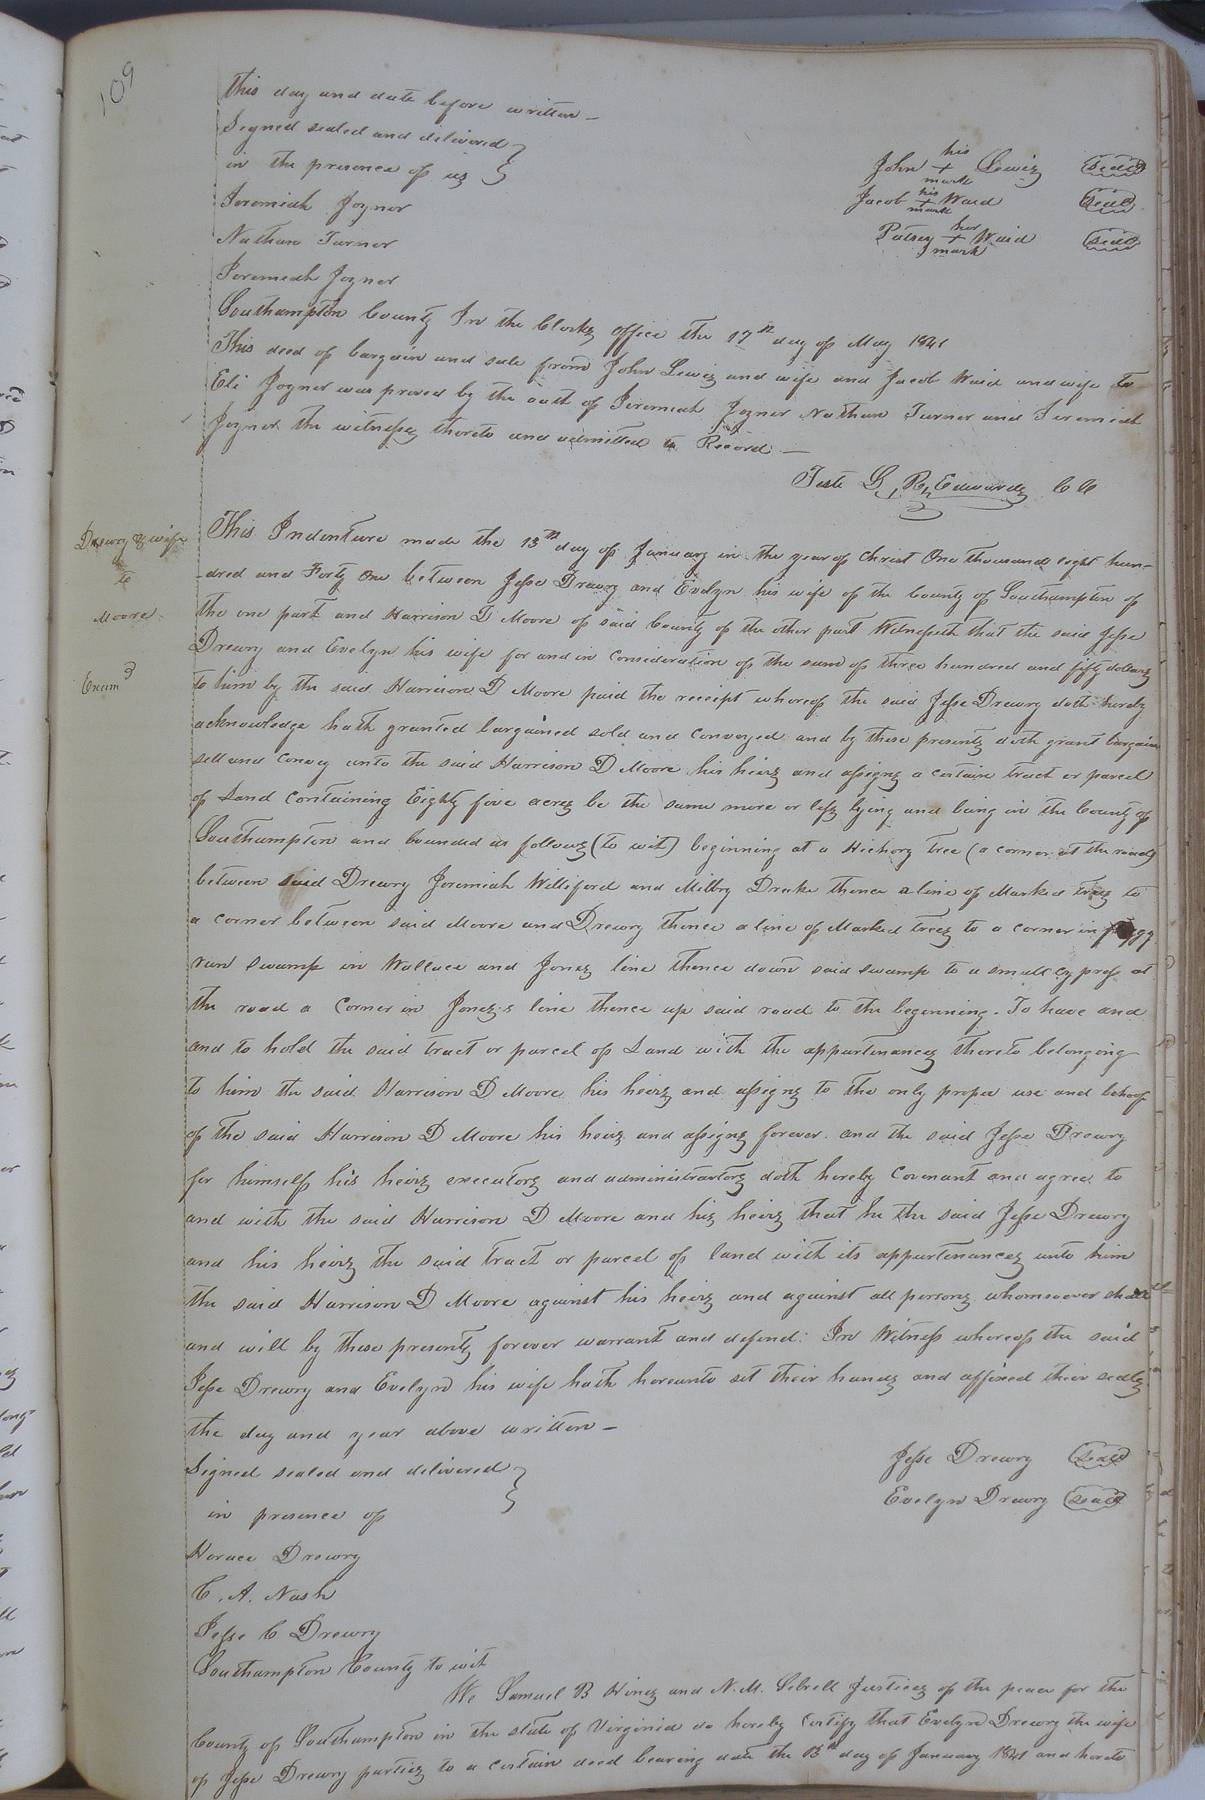 109
this day and date before written –
Signed sealed and delivered }
in the presence of us }
his
John + Lewis (Seal)
mark
his
Jacob + Ward (Seal)
mark
her
Patsey + Ward (Seal)
mark
Jeremiah Joyner
Nathan Turner
Jeremiah Joyner
Southampton County In the Clerks office the 17th day of May 1841
This deed of bargain and sale from John Lewis and wife and Jacob Ward and wife to
Eli Joyner was proved by the oath of Jeremiah Joyner Nathan Turner and Jeremiah
Joyner the witnesses thereto and admitted to Record –
Teste L. R. Edwards CC
Drewry & wife
to
Moore
Exam d
This Indenture made the 13th day of January in the year of Christ One thousand eight hun-
-dred and Forty One between Jesse Drewry and Evelyn his wife of the County of Southampton of
the one part and Harrison D Moore of said County of the other part Witnesseth that the said Jesse
Drewry and Evelyn his wife for and in Consideration of the sum of three hundred and fifty dollars
to him by the said Harrison D Moore paid the receipt whereof the said Jesse Drewry doth hereby
acknowledge hath granted bargained sold and Conveyed and by these presents doth grant bargain
sell and Convey unto the said Harrison D Moore his heirs and assigns a certain tract or parcel
of Land Containing Eighty five acres be the same more or less lying and being in the County of
Southampton and bounded as follows (to wit) beginning at a Hickory tree (a corner at the road)
between said Drewry Jeremiah Williford and Milby Drake thence a line of Marked trees to
a corner between said Moore and Drewry thence a line of Marked trees to a corner in
run swamp in Wallace and Jones line thence down said swamp to a small cypress at
the road a Corner in Jones's line thence up said road to the beginning. To have and
and to hold the said tract or parcel of Land with the appurtenances thereto belonging
to him the said Harrison D Moore his heirs and assigns to the only proper use and behoof
of the said Harrison D Moore his heirs and assigns forever. and the said Jesse Drewry
for himself his heirs executors and administrators doth hereby Covenant and agree to
and with the said Harrison D Moore and his heirs that he the said Jesse Drewry
and his heirs the said tract or parcel of land with its appurtenances unto him
the said Harrison D Moore against his heirs and against all persons whomsoever shall
and will by these presents forever warrant and defend. In Witness whereof the said
Jesse Drewry and Evelyn his wife hath hereunto set their hands and affixed their seals
the day and year above written –
Signed sealed and delivered }
in presence of }
Jesse Drewry (Seal)
Evelyn Drewry (Seal)
Horace Drewry
C. A. Nash
Jesse C Drewry
Southampton County to wit
We Samuel B Hines and N. M. Sebrell Justices of the peace for the
County of Southampton in the state of Virginia do hereby Certify that Evelyn Drewry the wife
of Jesse Drewry parties to a certain deed bearing date the 13th day of January 1841 and hereto